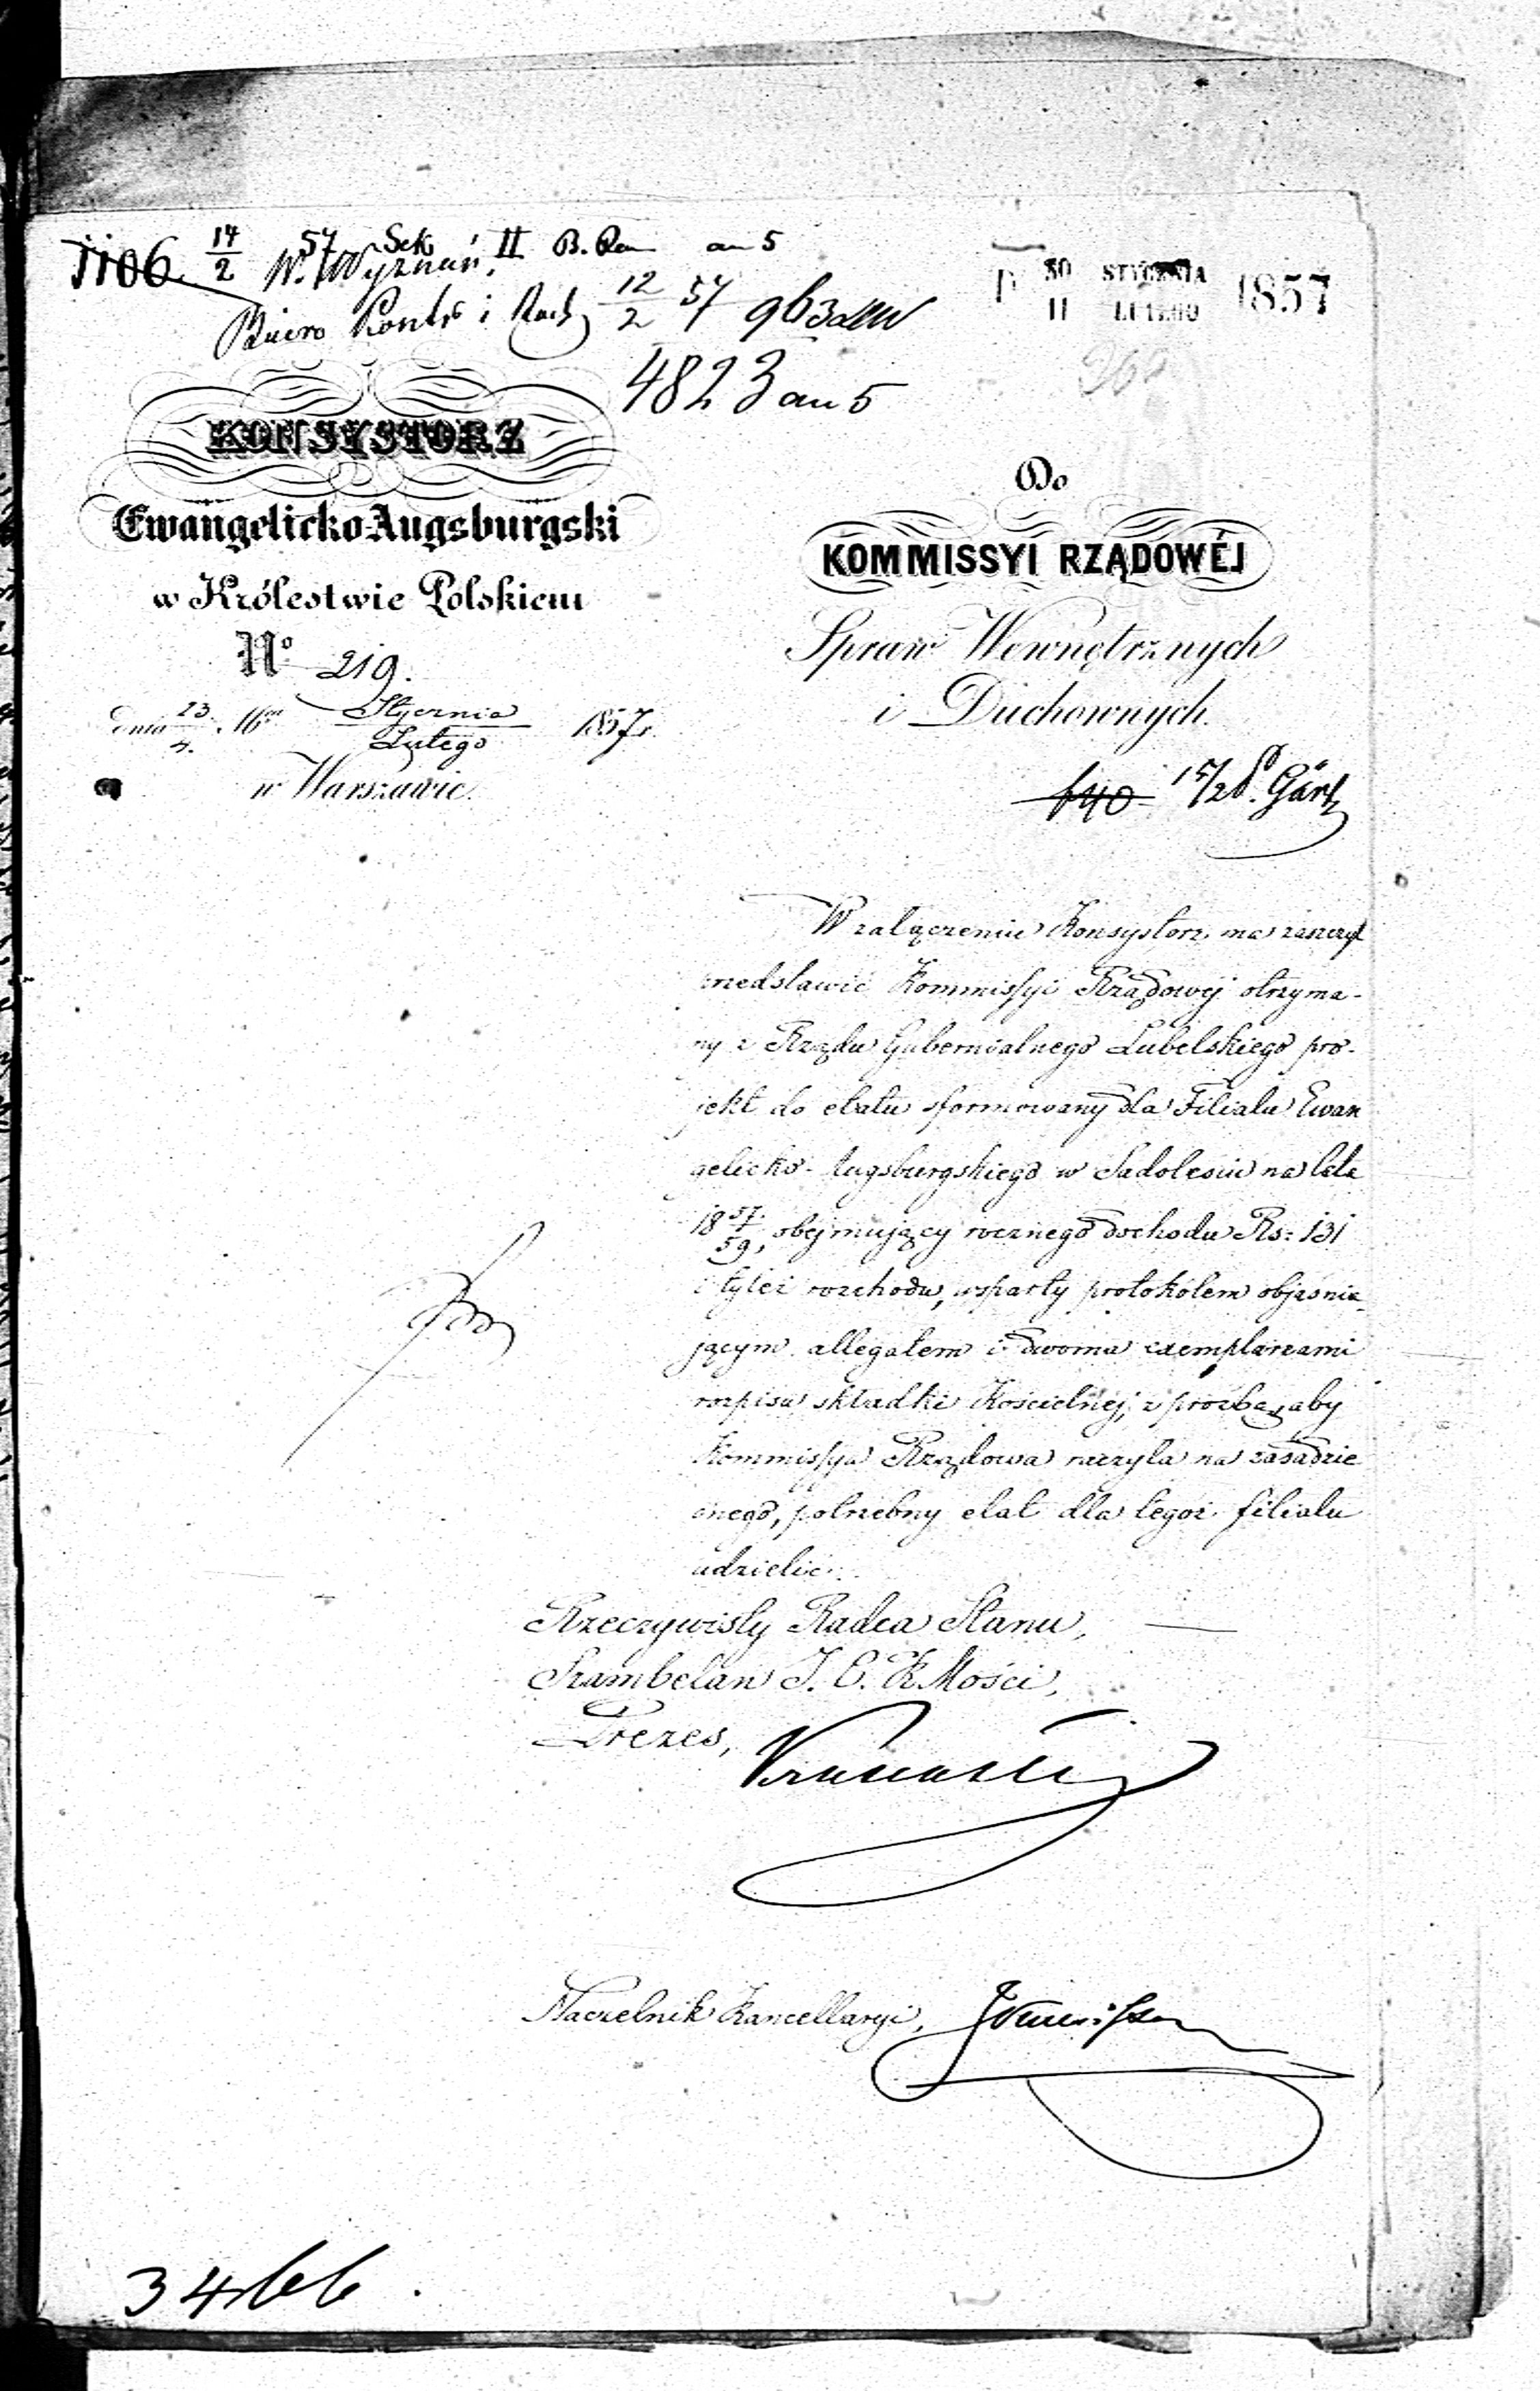 1106 14/2 57 Sek II B. an 5
W. Wyznań,
Biuro Kontr i Rach 12/2 57 963
4823 an 5
30 STYCZNIA
11 LUTEGO 1857
KONSYSTORZ
Ewangelicko-Augsburgski
w Królestwie Polskiem
No 219.
dnia 23/4. Stycznia/Lutego 1857 r.
w Warszawie.
Do
KOMMISSYI RZĄDOWÉJ
Spraw Wewnętrznych
i Duchownych.
640 15/2
W załączeniu Konsystorz ma zaszczyt
przedstawić Kommissyi Rządowej otrzyma-
ny z Rządu Gubernialnego Lubelskiego pro-
jekt do etatu sformowany dla Filiału Ewan
gelicko-Augsburgskiego w Sadolesiu na lata
18 57/59, obejmujący rocznego dochodu Rs: 131
i tyleż rozchodu, wsparty protokółem objaśnia-
jącym allegatem i dwoma exemplarzami
rozpisu składki Kościelnej, z prośbą, aby
Kommissya Rządowa raczyła na zasadzie
onego, potrzebny etat dla tegoż filiału
udzielić.
Rzeczywisty Radca Stanu,
Szambelan J. C. K Mości,
Prezes,
Naczelnik Kancellaryi,
3466.